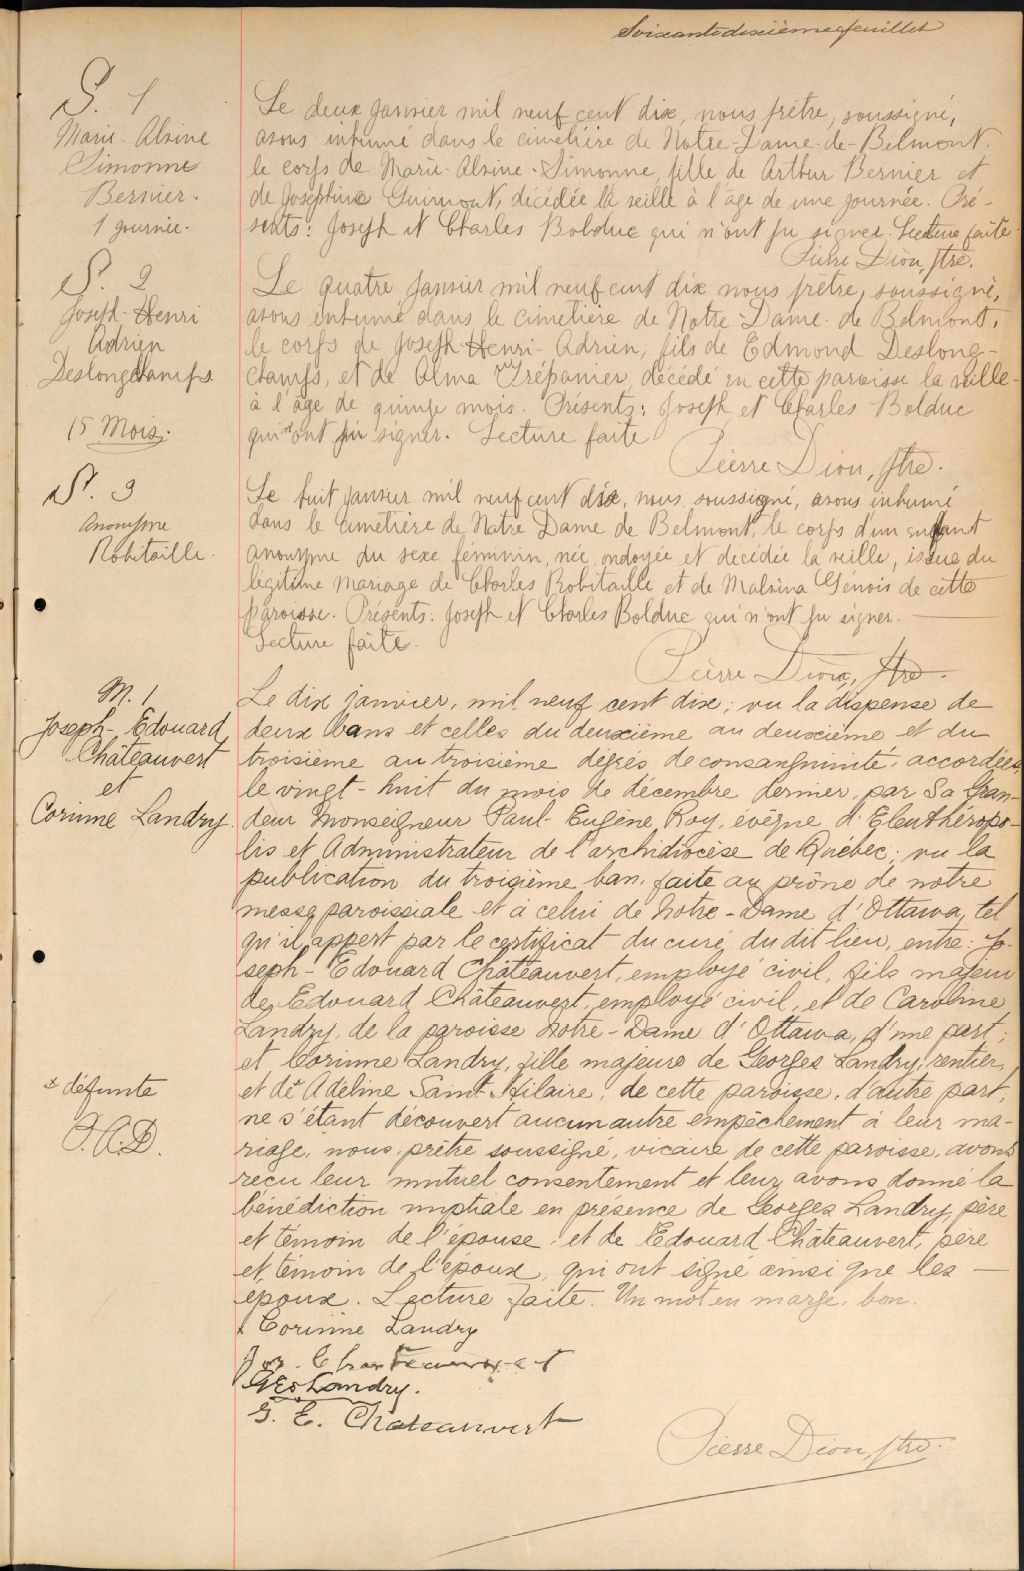 Soixante dixième feuillet
S. 1
Marie-Alvine
Simonne
Bernier.
1 journée.
Le deux janvier mil neuf cent dix, nous prêtre, soussigné,
avons inhumé dans le cimetière de Notre-Dame-de-Belmont.
le corps de Marie-Alvine-Simonne, fille de Arthur Bernier et
de Joséphine Guimont, décédée la veille à l'âge de une journée. Pré-
sents: Joseph et Charles Bolduc qui n'ont su signer. Lecture faite.
Pierre Dion, ptre.
S. 2
Joseph-Henri
Adrien
Deslongchamps.
15 Mois.
Le quatre janvier mil neuf cent dix nous prêtre, soussigné,
avons inhumé dans le cimetière de Notre-Dame-de Belmont,
le corps de Joseph-Henri-Adrien, fils de Edmond Deslong-
champs, et de Alma Trépanier, décédé en cette paroisse la veille
à l'âge de quinze mois. Présents: Joseph et Charles Bolduc
qui n'ont su signer. Lecture faite
Pierre Dion, ptre.
S. 3
Anonyme
Robitaille.
Le huit janvier mil neuf cent dix, nous soussigné, avons inhumé
dans le cimetière de Notre Dame de Belmont, le corps d'un enfant
anonyme du sexe féminin, née, ondoyée et décédée la veille, issue du
légitime mariage de Charles Robitaille et de Malvina Genois de cette
paroisse. Présents: Joseph et Charles Bolduc qui n'ont su signer.
Lecture faite.
Pierre Dion, ptre.
M. 1
Joseph-Edouard
Châteauvert
et
Corinne Landry.
Le dix janvier, mil neuf cent dix; vu la dispense de
deux bans et celles du deuxième au deuxième et du
troisième au troisième degrés de consanguinité, accordées
le vingt-huit du mois de décembre dernier, par Sa Gran-
deur Monseigneur Paul-Eugène Roy, évêque d'Eleuthéropo-
lis et Administrateur de l'archidiocèse de Québec; vu la
publication du troisième ban, faite au prône de notre
messe paroissiale et à celui de Notre-Dame d'Ottawa, tel
qu'il appert par le certificat du curé du dit lieu, entre: Jo-
seph-Edouard Châteauvert, employé civil, fils majeur
de Edouard Châteauvert, employé civil, et de Caroline
Landry, de la paroisse Notre-Dame d'Ottawa, d'une part;
et Corinne Landry, fille majeure de Georges Landry, rentier,
et de x Adéline Saint-Hilaire, de cette paroisse, d'autre part;
x défunte
P.A.D.
ne s'étant découvert aucun autre empêchement à leur ma-
riage, nous, prêtre soussigné, vicaire de cette paroisse, avons
reçu leur mutuel consentement et leur avons donné la
bénédiction nuptiale en présence de Georges Landry, père
et témoin de l'épouse, et de Edouard Châteauvert, père
et témoin de l'époux, qui ont signé ainsi que les
époux. Lecture faite. Un mot en marge, bon.
Corinne Landry
Jos. E. Chateauvert
Geo Landry.
G. E. Chateauvert
Pierre Dion, ptre.